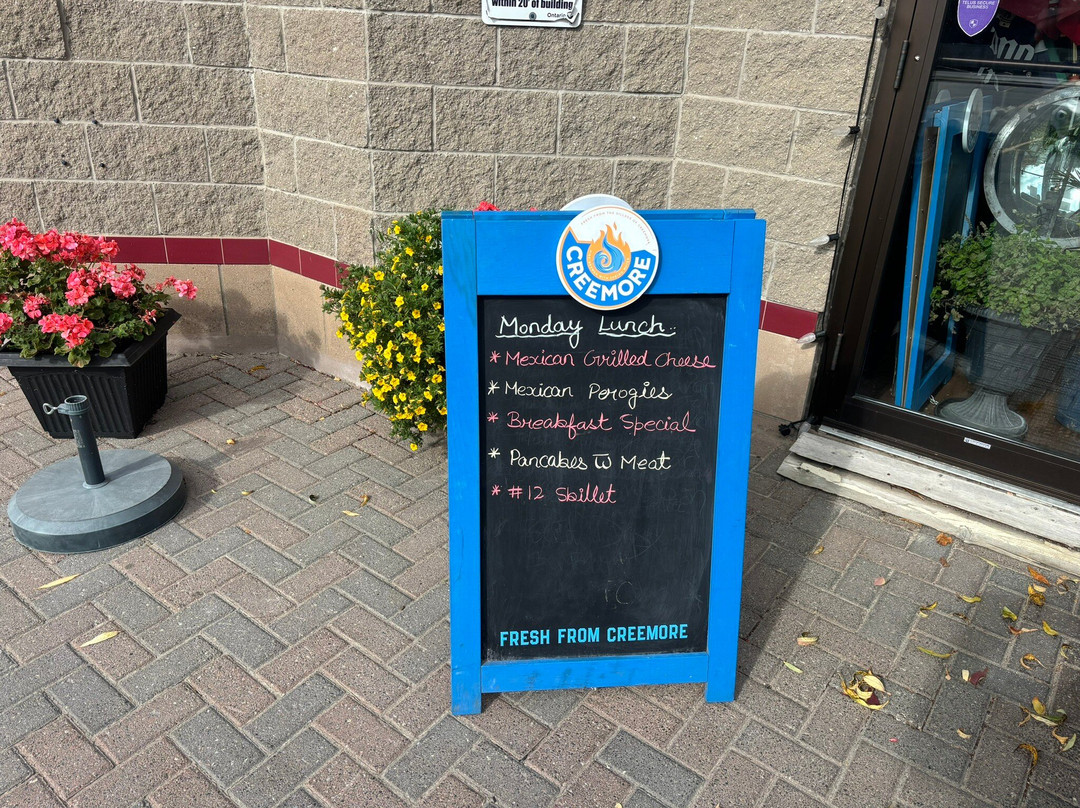 within 20' of building
Ontario
TELUS SECURE
BUSINESS
CREEMORE
Monday Lunch
* Mexican Grilled Cheese
* Mexican Perogies
* Breakfast Special
* Pancakes w̅ Meat
* #12 Skillet
FRESH FROM CREEMORE